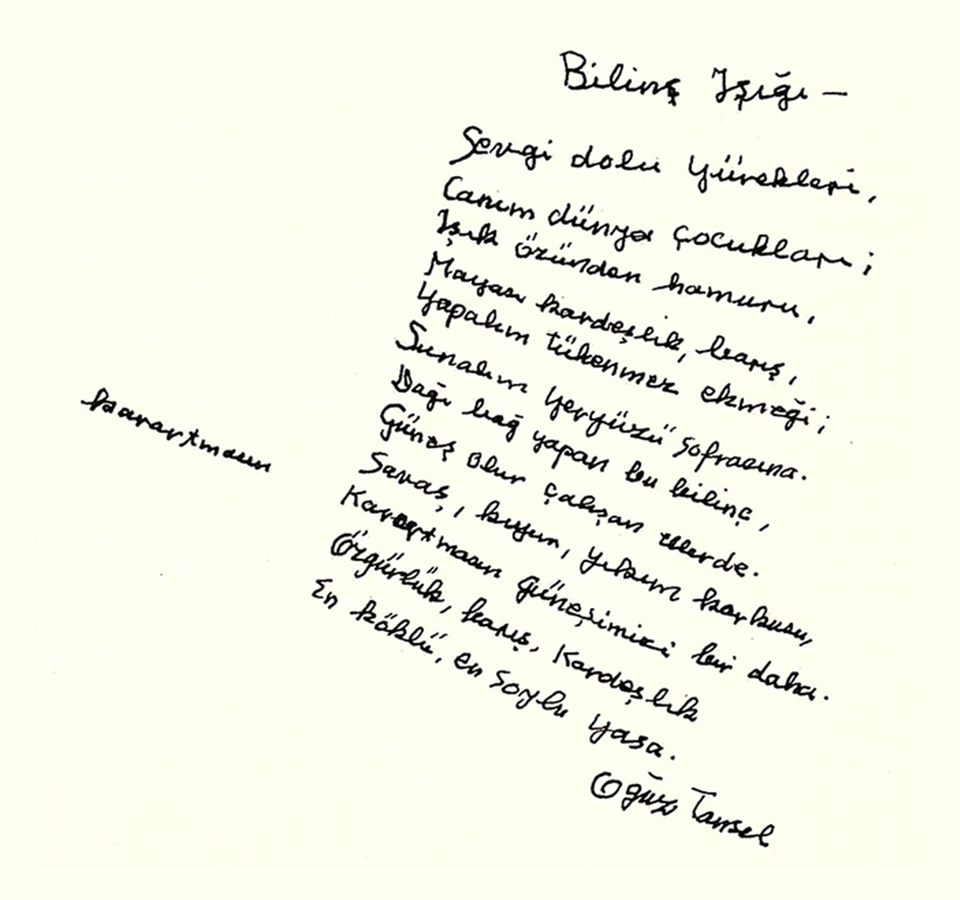 Bilinç Işığı —
Sevgi dolu yürekleri,
Canım dünya çocukları;
Işık özünden hamuru,
Mayası kardeşlik, barış,
Yapalım tükenmez ekmeği;
Sunalım yeryüzü sofrasına.
Dağı bağ yapan bu bilinç,
Güneş olur çalışan ellerde.
Savaş, kıyım, yıkım korkusu,
karartmasın
Karartmasın güneşimizi bir daha.
Özgürlük, barış, Kardeşlik
En köklü, en soylu yasa.
Oğuz Tansel